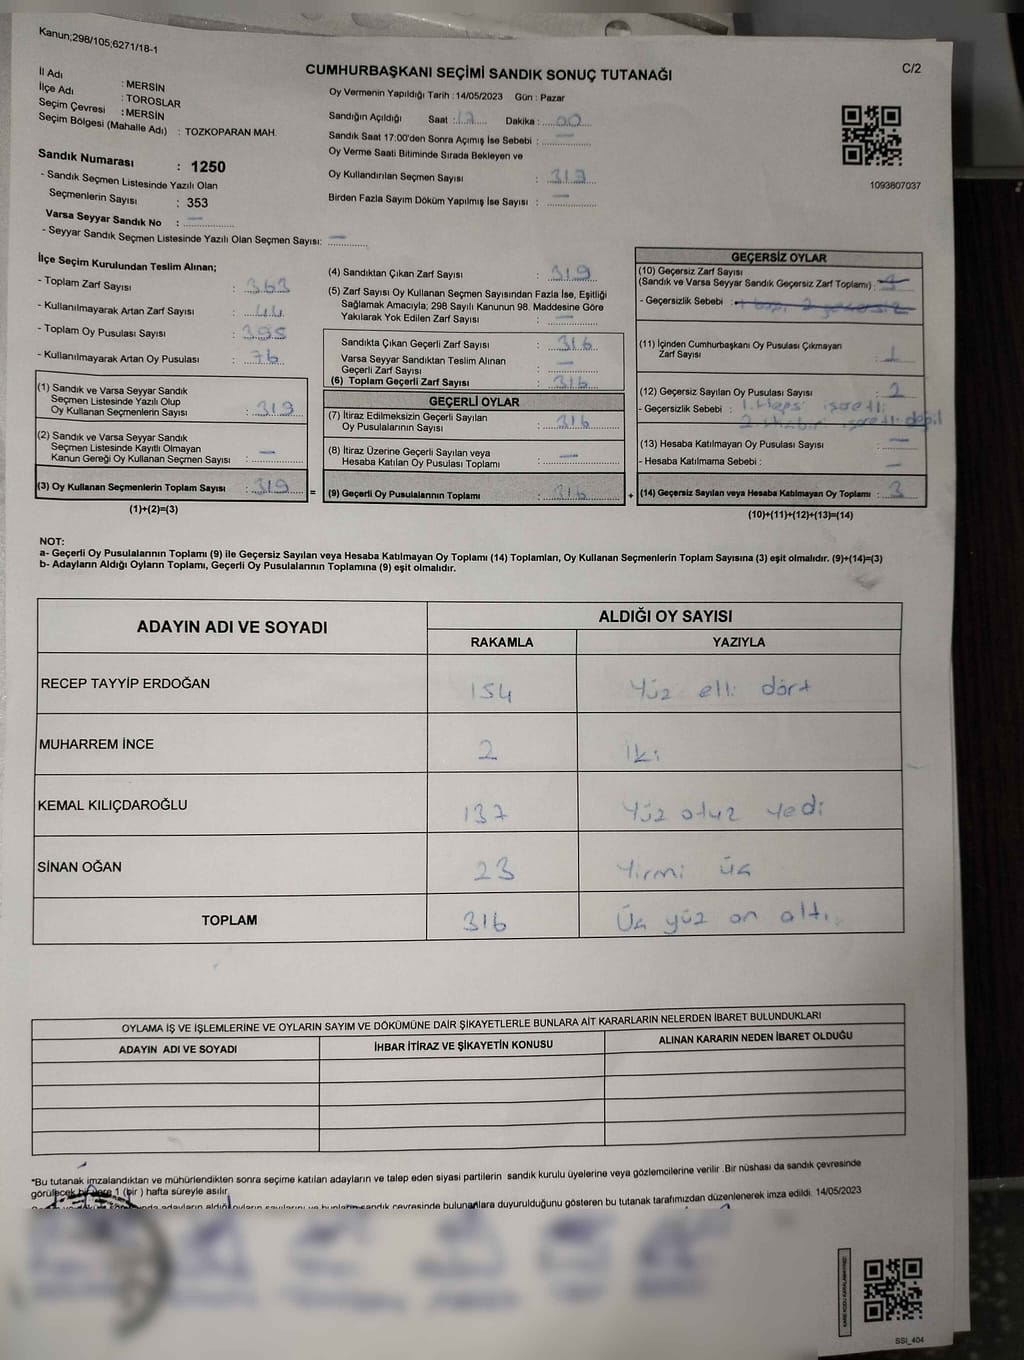 Kanun;298/105;6271/18-1
C/2
CUMHURBAŞKANI SEÇİMİ SANDIK SONUÇ TUTANAĞI
İl Adı : MERSİN
İlçe Adı : TOROSLAR
Seçim Çevresi : MERSİN
Seçim Bölgesi (Mahalle Adı) : TOZKOPARAN MAH.
Oy Vermenin Yapıldığı Tarih : 14/05/2023 Gün : Pazar
Sandığın Açıldığı Saat : 17 Dakika : 00
Sandık Saat 17:00'den Sonra Açımış İse Sebebi : —
Oy Verme Saati Bitiminde Sırada Bekleyen ve
Oy Kullandırılan Seçmen Sayısı : 319
Birden Fazla Sayım Döküm Yapılmış İse Sayısı : —
1093807037
Sandık Numarası : 1250
- Sandık Seçmen Listesinde Yazılı Olan
Seçmenlerin Sayısı : 353
Varsa Seyyar Sandık No : —
- Seyyar Sandık Seçmen Listesinde Yazılı Olan Seçmen Sayısı: —
İlçe Seçim Kurulundan Teslim Alınan;
- Toplam Zarf Sayısı : 363
- Kullanılmayarak Artan Zarf Sayısı : 44
- Toplam Oy Pusulası Sayısı : 395
- Kullanılmayarak Artan Oy Pusulası : 76
(1) Sandık ve Varsa Seyyar Sandık
Seçmen Listesinde Yazılı Olup
Oy Kullanan Seçmenlerin Sayısı : 319
(2) Sandık ve Varsa Seyyar Sandık
Seçmen Listesinde Kayıtlı Olmayan
Kanun Gereği Oy Kullanan Seçmen Sayısı : —
(3) Oy Kullanan Seçmenlerin Toplam Sayısı : 319
(1)+(2)=(3)
(4) Sandıktan Çıkan Zarf Sayısı : 319
(5) Zarf Sayısı Oy Kullanan Seçmen Sayısından Fazla İse, Eşitliği
Sağlamak Amacıyla; 298 Sayılı Kanunun 98. Maddesine Göre
Yakılarak Yok Edilen Zarf Sayısı : —
Sandıkta Çıkan Geçerli Zarf Sayısı : 316
Varsa Seyyar Sandıktan Teslim Alınan
Geçerli Zarf Sayısı : —
(6) Toplam Geçerli Zarf Sayısı : 316
GEÇERLİ OYLAR
(7) İtiraz Edilmeksizin Geçerli Sayılan
Oy Pusulalarının Sayısı : 316
(8) İtiraz Üzerine Geçerli Sayılan veya
Hesaba Katılan Oy Pusulası Toplamı : —
= (9) Geçerli Oy Pusulalarının Toplamı : 316
GEÇERSİZ OYLAR
(10) Geçersiz Zarf Sayısı
(Sandık ve Varsa Seyyar Sandık Geçersiz Zarf Toplamı) : 3
- Geçersizlik Sebebi :
(11) İçinden Cumhurbaşkanı Oy Pusulası Çıkmayan
Zarf Sayısı : 1
(12) Geçersiz Sayılan Oy Pusulası Sayısı : 2
- Geçersizlik Sebebi : 1. Hepsi işaretli
2. işaretli değil
(13) Hesaba Katılmayan Oy Pusulası Sayısı : —
- Hesaba Katılmama Sebebi : —
+ (14) Geçersiz Sayılan veya Hesaba Katılmayan Oy Toplamı : 3
(10)+(11)+(12)+(13)=(14)
NOT:
a- Geçerli Oy Pusulalarının Toplamı (9) ile Geçersiz Sayılan veya Hesaba Katılmayan Oy Toplamı (14) Toplamları, Oy Kullanan Seçmenlerin Toplam Sayısına (3) eşit olmalıdır. (9)+(14)=(3)
b- Adayların Aldığı Oyların Toplamı, Geçerli Oy Pusulalarının Toplamına (9) eşit olmalıdır.
ADAYIN ADI VE SOYADI ALDIĞI OY SAYISI
RAKAMLA YAZIYLA
RECEP TAYYİP ERDOĞAN 154 Yüz elli dört
MUHARREM İNCE 2 İki
KEMAL KILIÇDAROĞLU 137 Yüz otuz yedi
SİNAN OĞAN 23 Yirmi üç
TOPLAM 316 Üç yüz on altı
OYLAMA İŞ VE İŞLEMLERİNE VE OYLARIN SAYIM VE DÖKÜMÜNE DAİR ŞİKAYETLERLE BUNLARA AİT KARARLARIN NELERDEN İBARET BULUNDUKLARI
ADAYIN ADI VE SOYADI İHBAR İTİRAZ VE ŞİKAYETİN KONUSU ALINAN KARARIN NEDEN İBARET OLDUĞU
*Bu tutanak imzalandıktan ve mühürlendikten sonra seçime katılan adayların ve talep eden siyasi partilerin sandık kurulu üyelerine veya gözlemcilerine verilir .Bir nüshası da sandık çevresinde
görülecek bir yere 1 (bir ) hafta süreyle asılır.
adayların aldığı oyların sayılarını ve bunların sandık çevresinde bulunanlara duyurulduğunu gösteren bu tutanak tarafımızdan düzenlenerek imza edildi. 14/05/2023
SSI_404